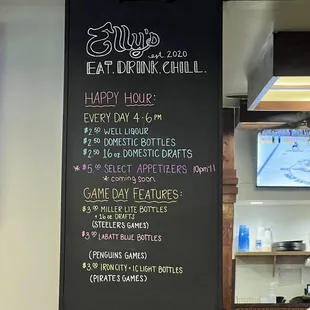 Elly's
est. 2020
EAT. DRINK. CHILL.
HAPPY HOUR:
EVERY DAY 4-6PM
$2.50 WELL LIQOUR
$2.50 DOMESTIC BOTTLES
$2.50 16 oz DOMESTIC DRAFTS
*$5.00 SELECT APPETIZERS 10pm-11
*coming soon
GAME DAY FEATURES:
$3.00 MILLER LITE BOTTLES
+ 16 oz DRAFTS
(STEELERS GAMES)
$3.00 LABATT BLUE BOTTLES
(PENGUINS GAMES)
$3.00 IRON CITY + IC LIGHT BOTTLES
(PIRATES GAMES)